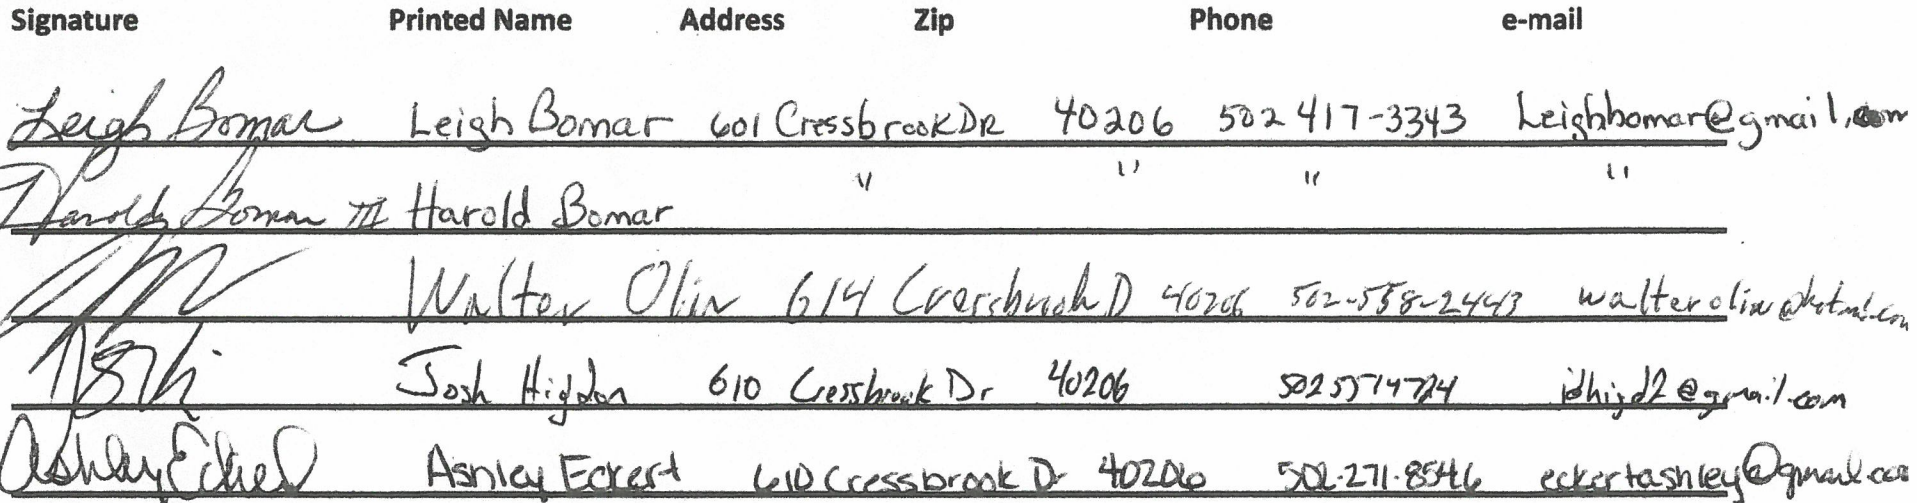 Signature Printed Name Address Zip Phone e-mail
Leigh Bomar Leigh Bomar 601 Cressbrook DR 40206 502 417-3343 Leighbomar@gmail.com
Harold Bomar III Harold Bomar " " " "
Walter Olin 614 Cressbrook D 40206 502-558-2443 walterolin@hotmail.com
Josh Higdon 610 Cressbrook Dr 40206 jdhigd2@gmail.com
Ashley Eckert Ashley Eckert 610 Cressbrook Dr 40206 502-271-8546 eckertashley@gmail.com